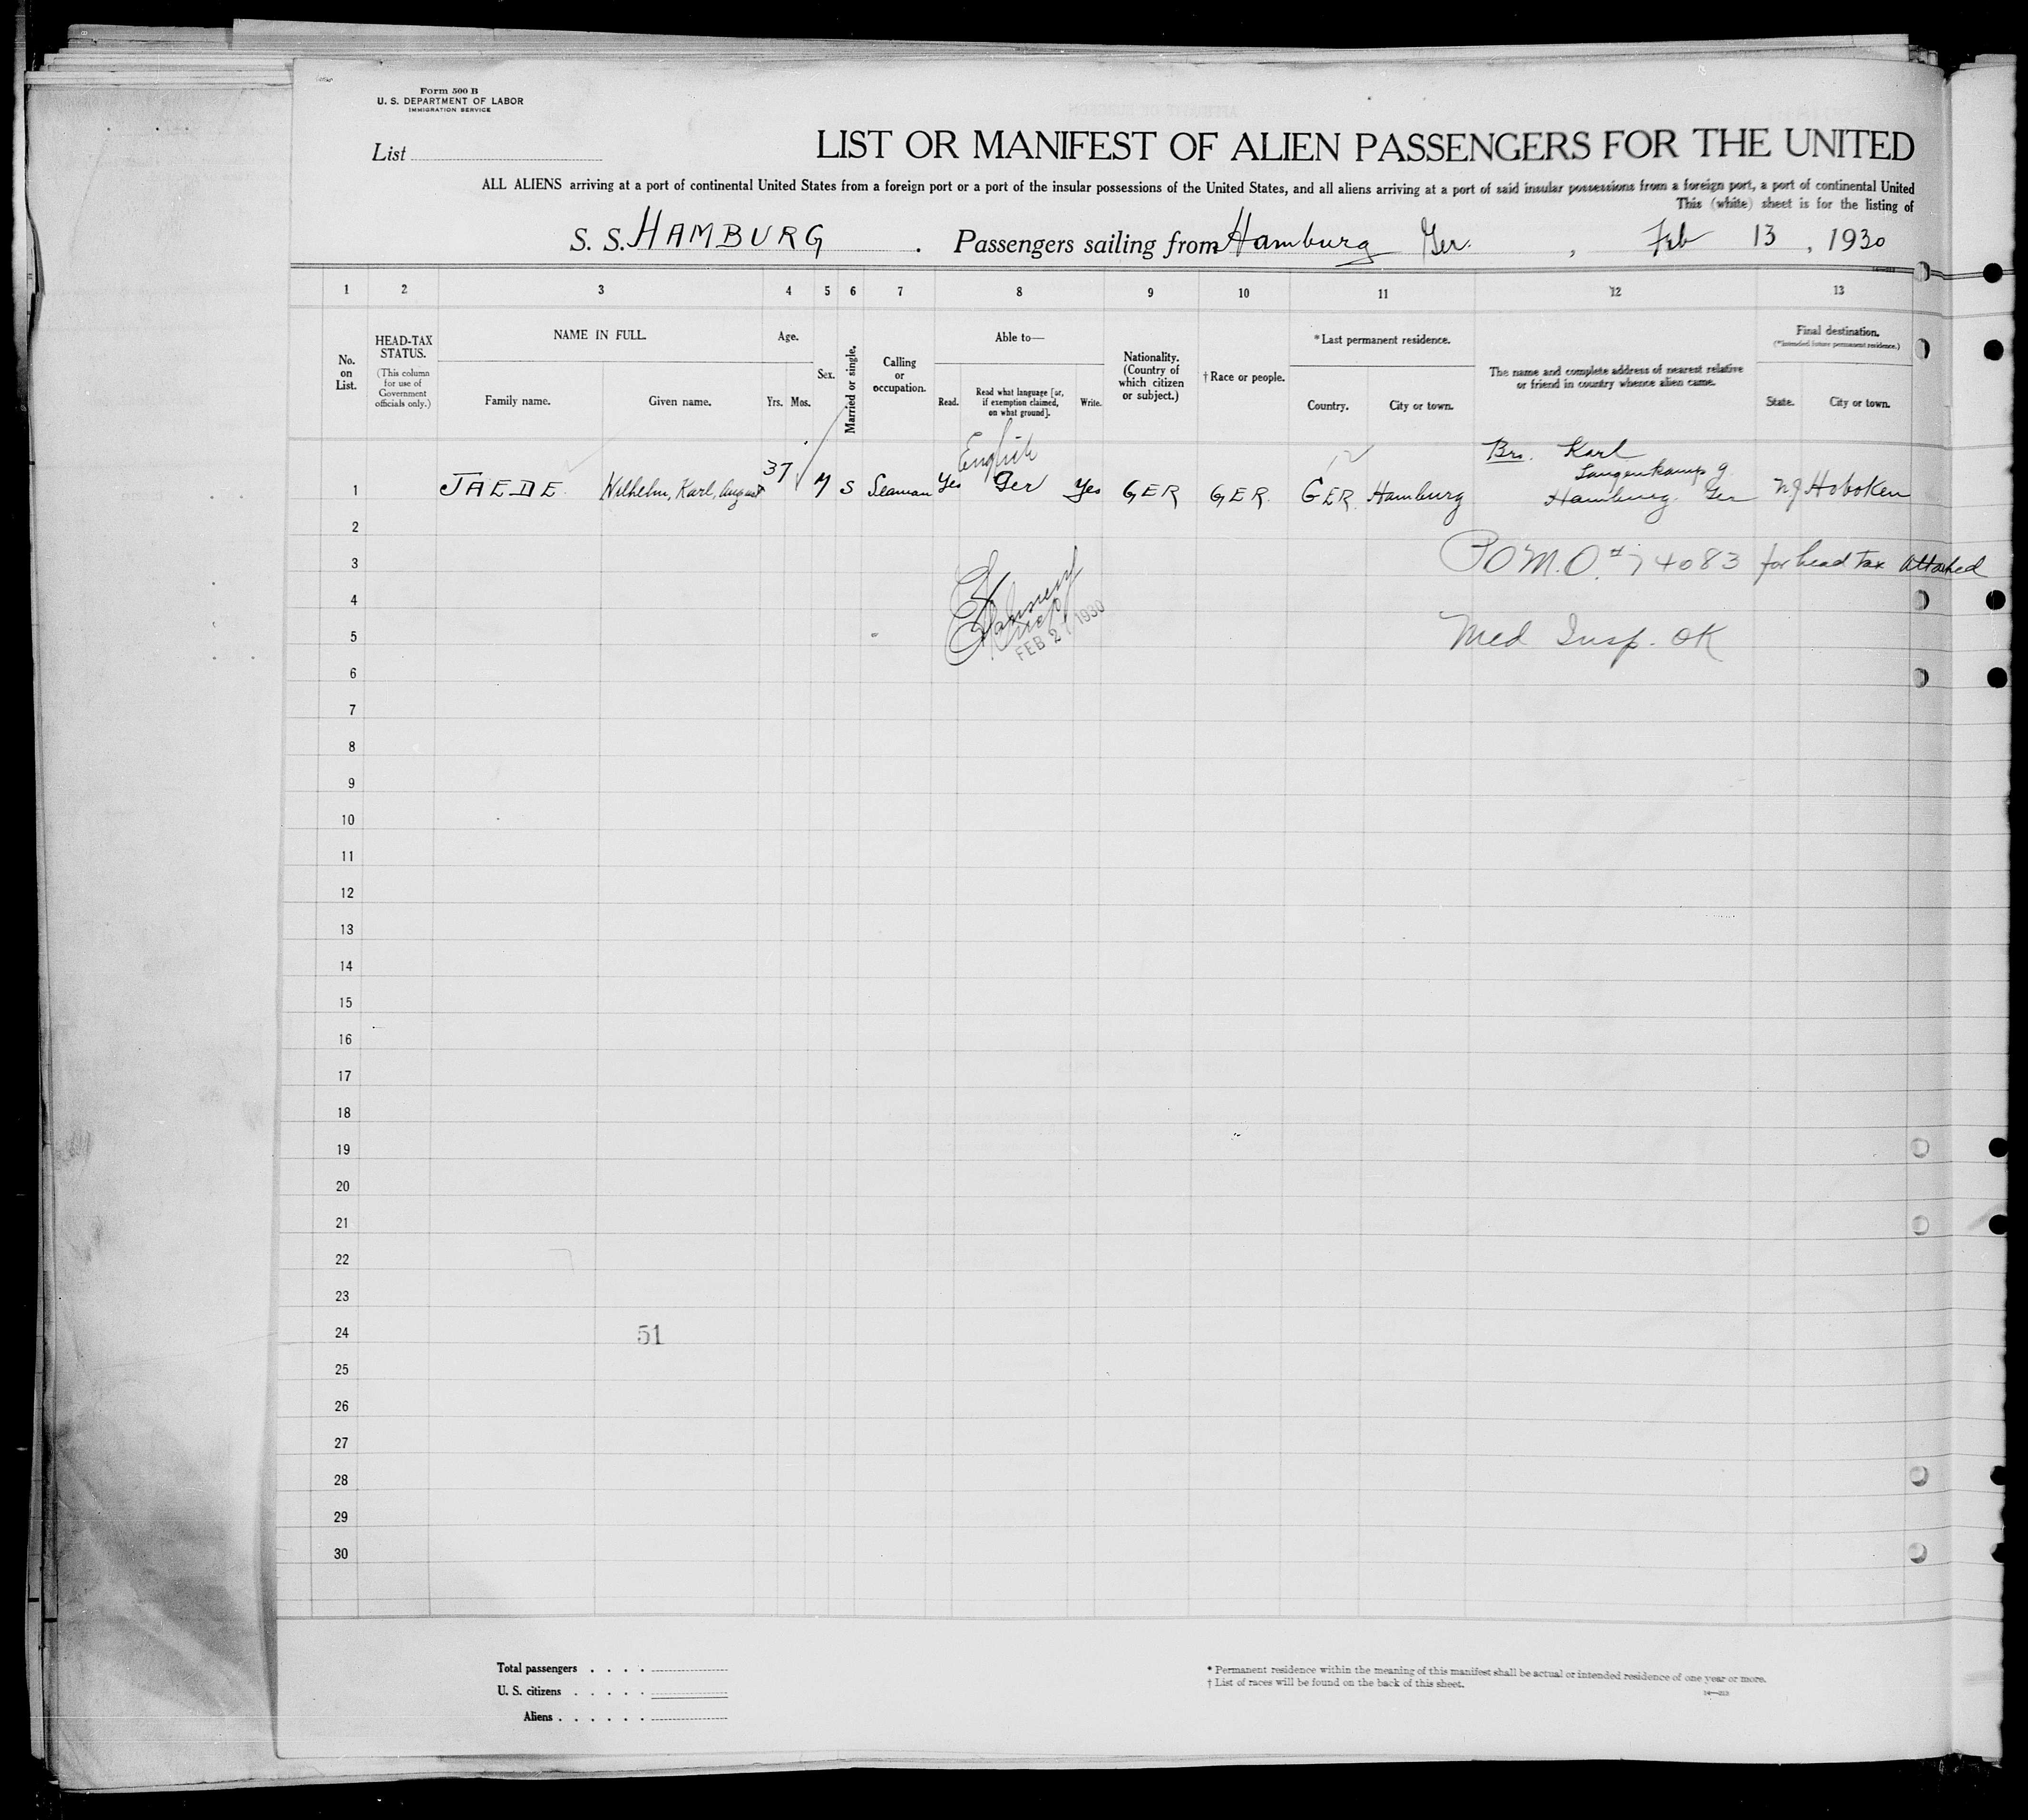 Form 500 B
U. S. DEPARTMENT OF LABOR
IMMIGRATION SERVICE
List
LIST OR MANIFEST OF ALIEN PASSENGERS FOR THE UNITED
ALL ALIENS arriving at a port of continental United States from a foreign port or a port of the insular possessions of the United States, and all aliens arriving at a port of said insular possessions from a foreign port, a port of continental United
This (white) sheet is for the listing of
S. S. HAMBURG . Passengers sailing from Hamburg Ger. , Feb 13 , 1930
1 2 3 4 5 6 7 8 9 10 11 12 13
No. on List.
HEAD-TAX STATUS.
(This column for use of Government officials only.)
NAME IN FULL.
Family name. Given name.
Age.
Yrs. Mos.
Sex.
Married or single.
Calling or occupation.
Able to—
Read. Read what language [or, if exemption claimed, on what ground]. Write.
Nationality. (Country of which citizen or subject.)
† Race or people.
* Last permanent residence.
Country. City or town.
The name and complete address of nearest relative or friend in country whence alien came.
Final destination.
(*Intended future permanent residence.)
State. City or town.
English
Bro. Karl
Langenkamp 9
1 JAEDE Wilhelm, Karl, August 37 M S Seaman Yes Ger Yes GER GER. GER. Hamburg Hamburg. Ger NJ Hoboken
2
3 P.O.M.O. #74083 for head tax attached
4
5 Med Insp. OK
FEB 27 1930
6
7
8
9
10
11
12
13
14
15
16
17
18
19
20
21
22
23
24 51
25
26
27
28
29
30
Total passengers . . . .
U. S. citizens . . . . .
Aliens . . . . . .
* Permanent residence within the meaning of this manifest shall be actual or intended residence of one year or more.
† List of races will be found on the back of this sheet.